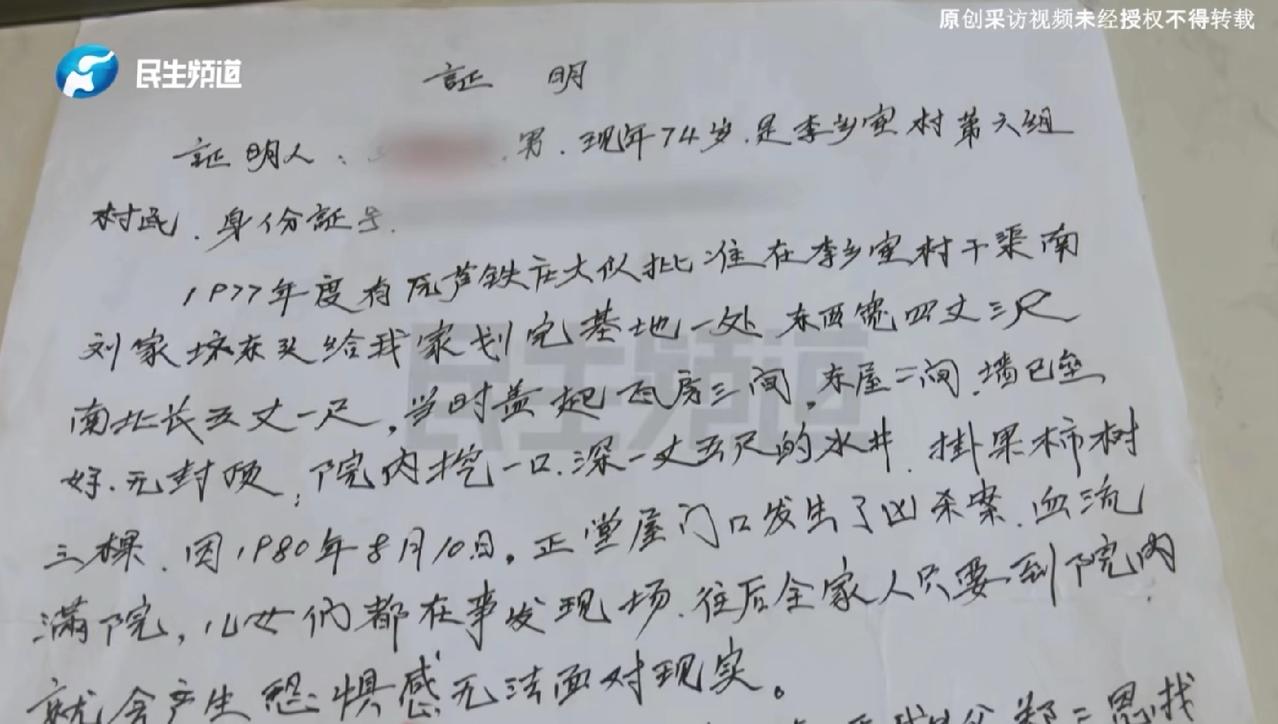 原创采访视频未经授权不得转载
民生频道
证 明
证明人: 男.现年74岁.是李乡宦村第六组
村民.身份证号.
1977年度有原芦铁庄大队批准在李乡宦村干渠南
刘家坟东头给我家划宅基地一处 东西宽四丈三尺
民生频道
南北长五丈一尺,当时盖起瓦房三间,东屋二间.墙已垒
好.无封顶;院内挖一口.深一丈五尺的水井.掛果柿树
三棵.因1980年8月10日。正堂屋门口发生了凶杀案.血流
满院,儿女们都在事发现场.往后全家人只要到院内
就会产生恐惧感无法面对现实。